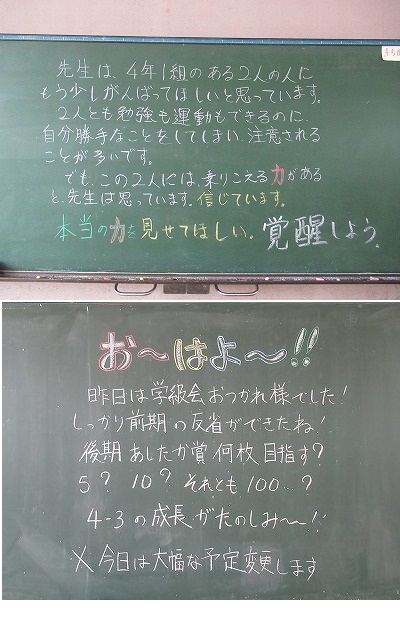 先生は、4年1組のある2人の人に
もう少しがんばってほしいと思っています。
2人とも勉強も運動もできるのに、
自分勝手なことをしてしまい、注意される
ことが多いです。
でも、この2人には、乗りこえる力がある
と、先生は思っています。信じています。
本当の力を見せてほしい。覚醒しよう。
お〜はよ〜!!
昨日は学級会おつかれ様でした!
しっかり前期の反省ができたね!
後期あしたか賞何枚目指す?
5? 10? それとも100…?
4-3の成長がたのしみ〜!!
※今日は大幅な予定変更します